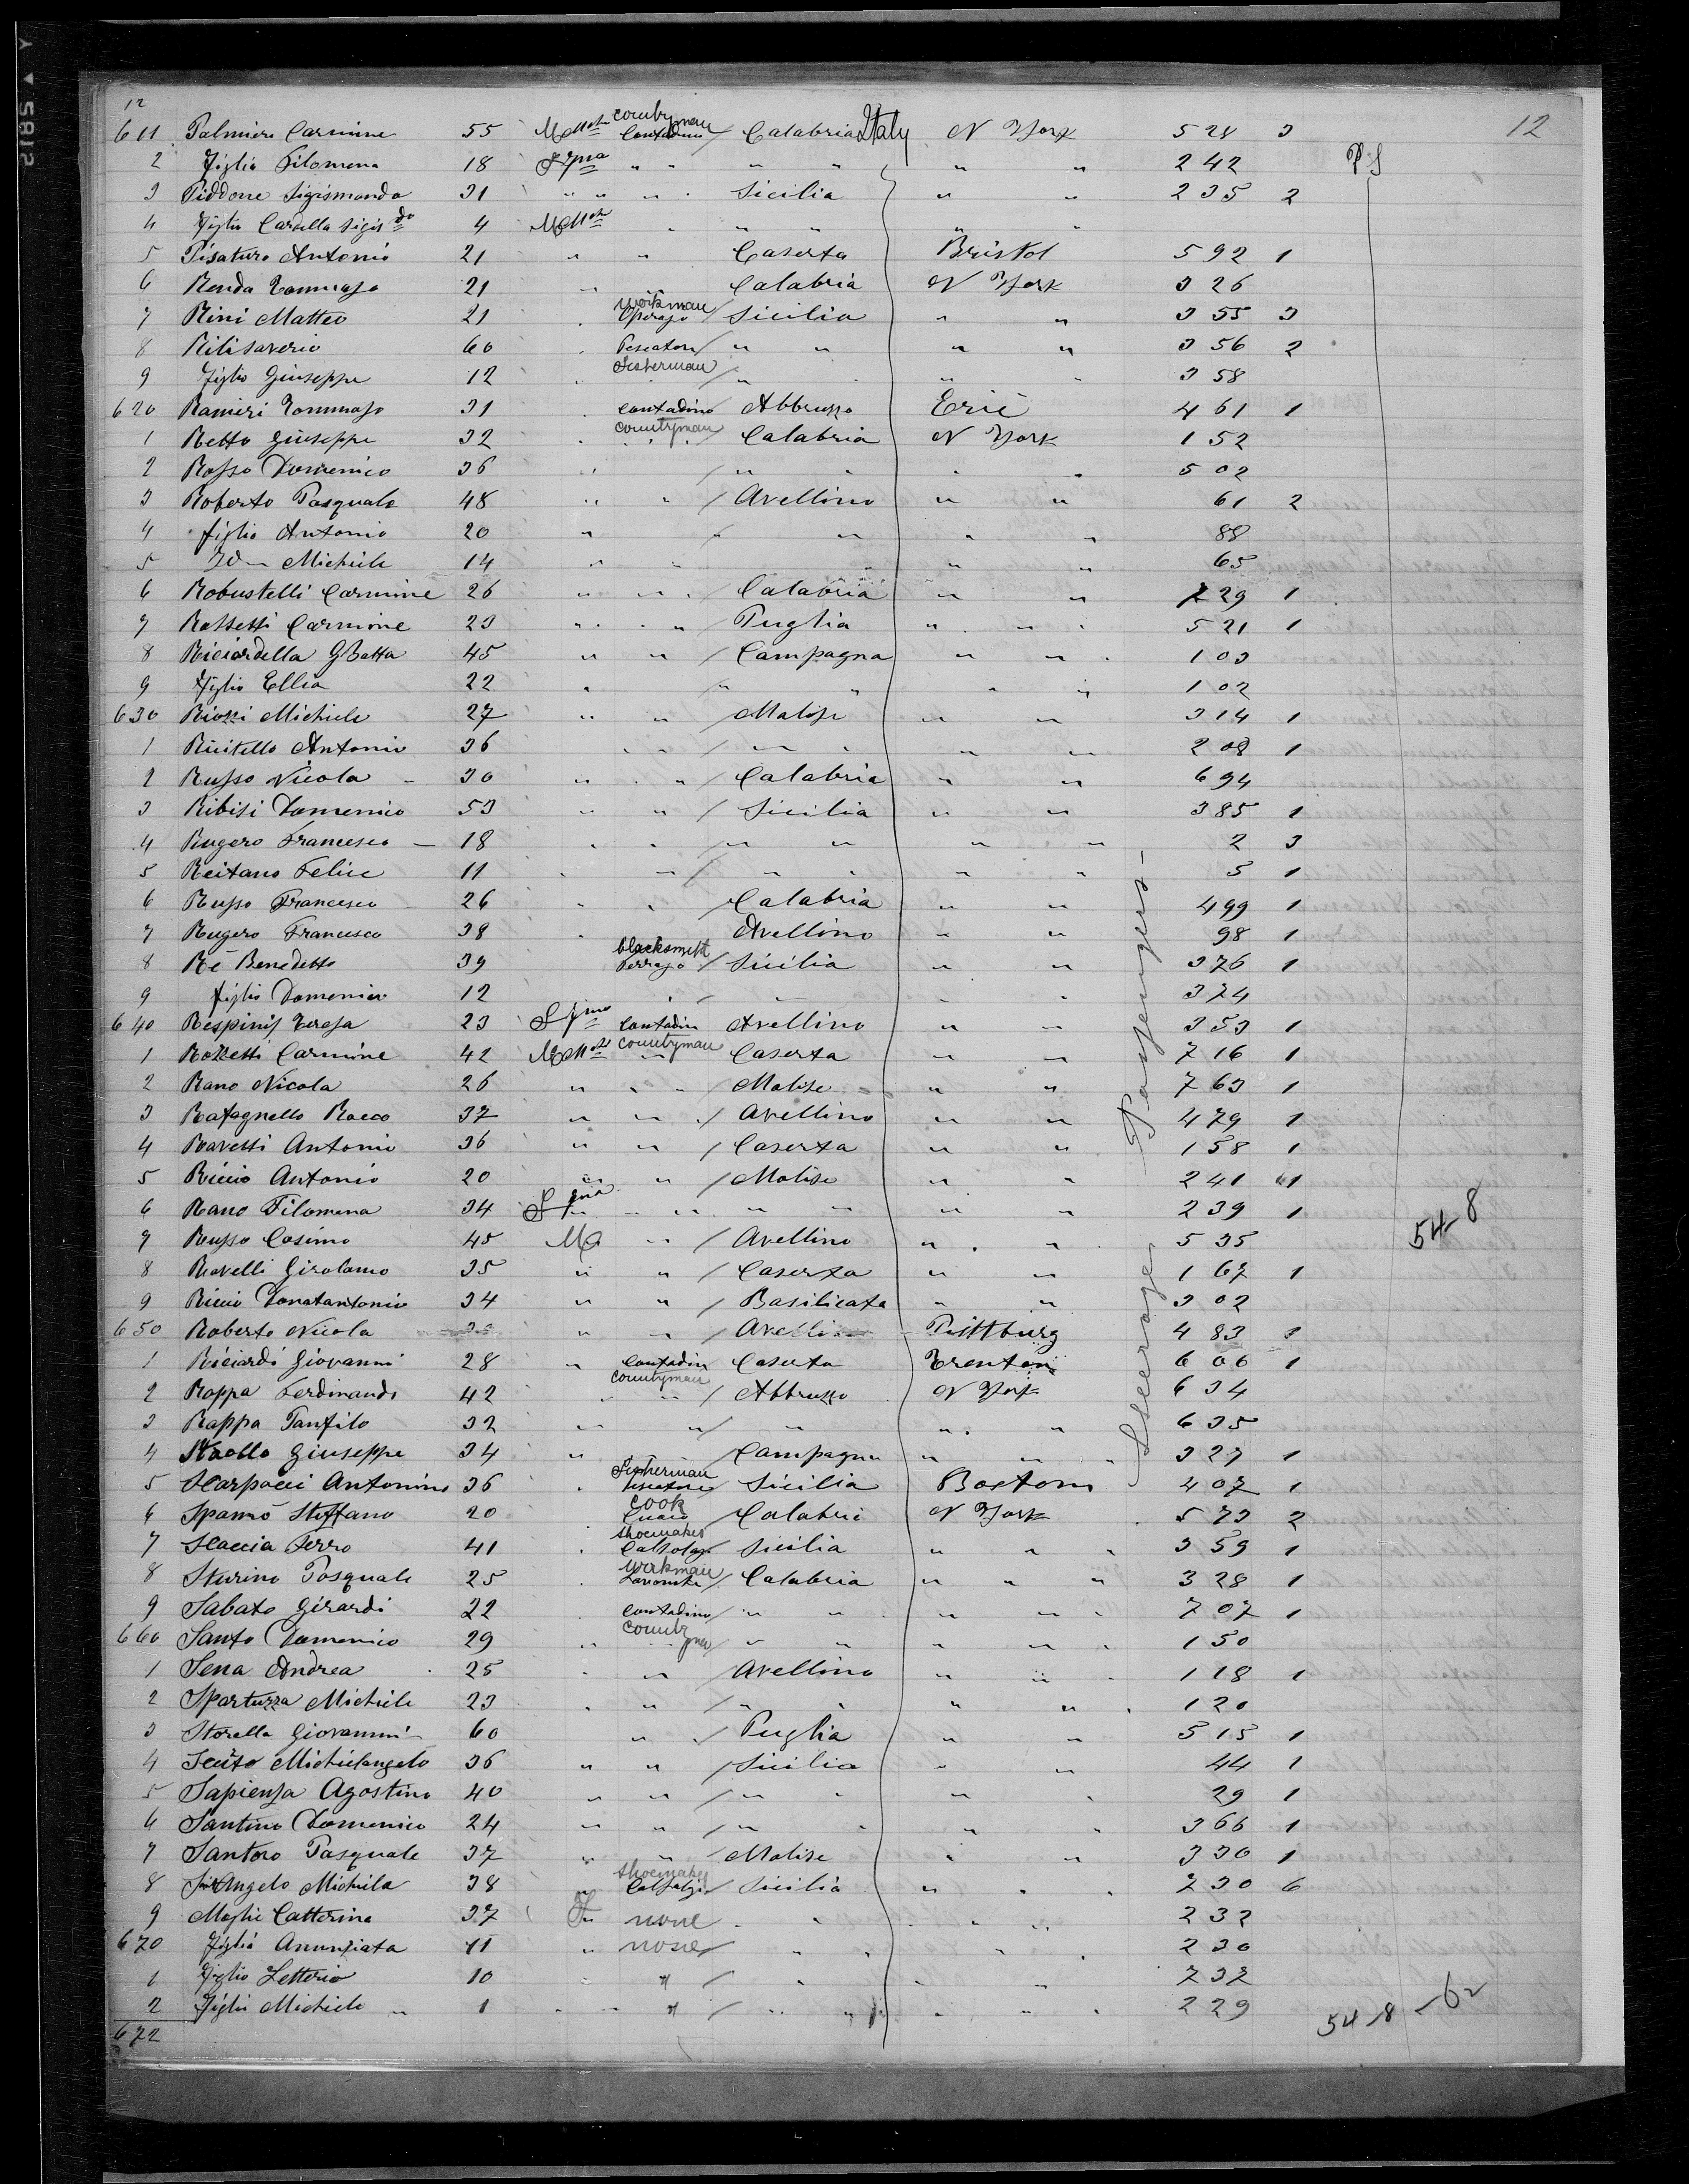 12
12
611 Palmieri Carmine 55 countryman Contadino / Calabria Italy N York 528 3
2 Figlia Filomena 18 " " " " " " 242
3 Piddone Sigismonda 31 " " " Sicilia " " 235 2
4 Figlio Carsella Sigisdo 4 " " " " "
5 Pisaturo Antonio 21 " " Caserta Bristol 592 1
6 Renda Tommaso 21 " " Calabria N York 326
7 Rini Matteo 21 workman Operajo / Sicilia " " 355 3
8 60 Pescatore / " " " " 356 2
9 Figlio Giuseppe 12 Fisherman / " " " 358
620 Ranieri Tommaso 31 contadino Abbruzzo Erie 461 1
1 Retto Giuseppe 32 countryman / Calabria N York 152
2 Rosso Domenico 36 " / " " " " 502
3 Roberto Pasquale 48 " " / Avellino " " 61 2
4 figlio Antonio 20 " " " " " 88
5 Id — Michiele 14 " " " " " 65
6 Robustelli Carmine 26 " " Calabria " " 729 1
7 Rossetti Carmine 23 " " / Puglia " " 521 1
8 Ricciardella GBatta 45 " " / Campagna " " 103
9 figlio Ellia 22 " / " " " " 102
630 Riozzi Michiele 27 " " / Molise " " 314 1
1 Ricitello Antonio 36 " " / " " " " 208 1
2 Russo Nicola 30 " " / Calabria " " 694
3 Ribisi Domenico 53 " " / Sicilia " " 385 1
4 Rugero Francesco — 18 " " / " " " " 2 3
5 Reitano Felice 11 " " / " " " " 5 1
6 Russo Francesco 26 " " / Calabria " " 499 1
7 Rugero Francesco 38 " Avellino " " 98 1
8 Re Benedetto 39 blacksmith Ferrajo / Sicilia " " 376 1
9 figlio Domenico 12 " / " " " 374
640 Respinis Teresa 23 Contadin Avellino " " 353 1
1 Rossetti Carmine 42 countryman " Caserta " " 716 1
2 Rano Nicola 26 " " " Molise " " 763 1
3 Rafagnello Rocco 37 " " / Avellino " " 479 1
4 Ravetti Antonio 36 " " / Caserta " " 158 1
5 Riccio Antonio 20 " " / Molise " " 241 1
6 Rano Filomena 34 " " " " " " 239 1
54-8
7 Russo Cosimo 45 " / Avellino " " 535
8 Rovelli Girolamo 35 " " / Caserta " " 167 1
9 Riccio Donatantonio 34 " " / Basilicata " " 302
650 Roberto Nicola " " / Avellino Pittburg 483 1
1 Ricciardi Giovanni 28 " Contadin countryman Caserta Trenton 606 1
2 Rappa Ferdinando 42 " " / Abbruzzo N York 634
3 Rappa Panfilo 32 " " / " " " 635
4 Giuseppe 34 " Campagna " " 327 1
5 Scarpacci Antonino 36 Fisherman Pescatore Sicilia Boston 407 1
6 Spanò Steffano 20 cook Cuoco / Calabria N York 573 2
7 Scaccia Ferro 41 shoemaker Calzolajo Sicilia " " 359 1
8 Sturino Pasquale 25 workman / Calabria " " 328 1
9 Sabato Girardi 22 contadino / " " " " 707 1
660 Santo Domenico 29 " country man / " " " " 150
1 Sena Andrea 25 " " Avellino " " 118 1
2 Spartuzza Michiele 23 " " / " " " " 120
3 Storella Giovanni 60 " / Puglia " " 515 1
4 Michielangelo 36 " " / Sicilia " " 44 1
5 Sapienza Agostino 40 " " / " " " " 29 1
6 Santino Domenico 24 " " / " " " " 366 1
7 Santoro Pasquale 37 " " / Molise " " 330 1
8 Angelo Michiele 38 " shoemaker Calzolajo Sicilia " " 230 6
9 Moglie Catterina 37 F none " " " " 232
670 Figlia Anunziata 11 " none / " " " " 230
1 Figlio Letterio 10 " " / " " " 232
2 Figlio Michiele 1 " " / " " " " 229
54-8 -62
672
Steerage Passengers —